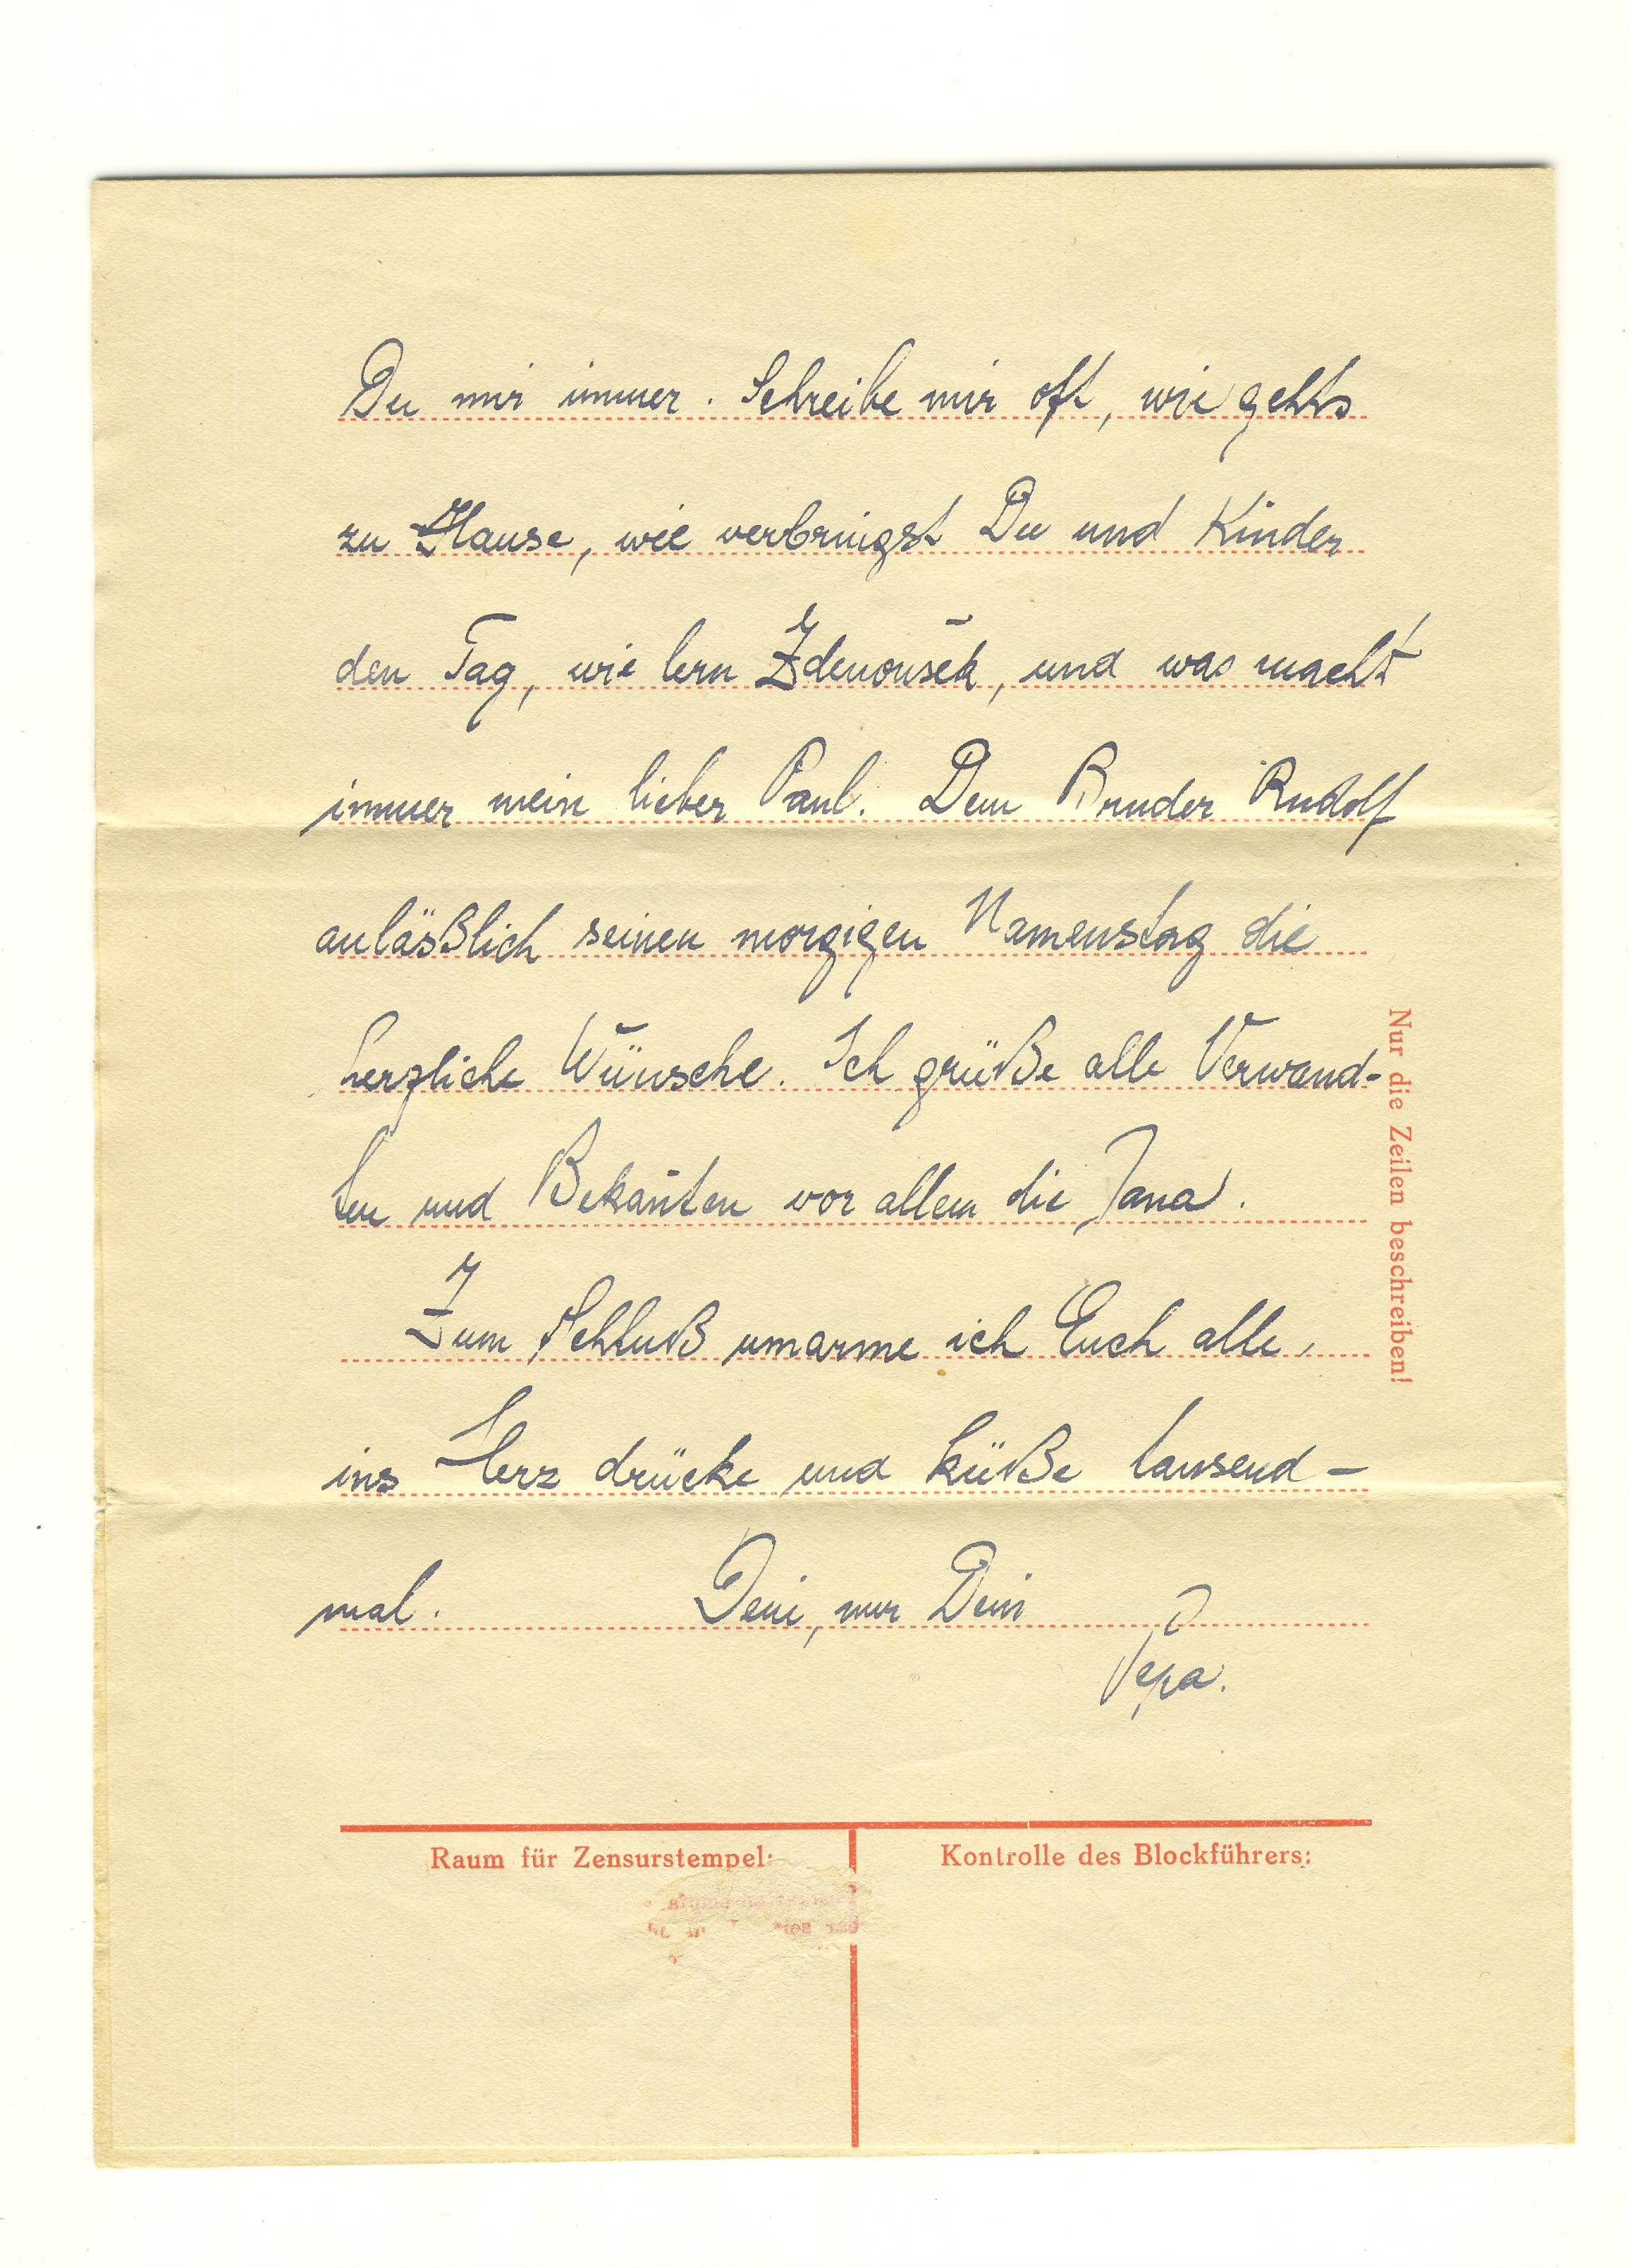 Du mir immer. Schreibe mir oft, wie gehts
zu Hause, wie verbringst Du und Kinder
den Tag, wie lern Zdenoušek, und was macht
immer mein lieber Paul. Dem Bruder Rudolf
anläßlich seinen morgigen Namenstag die
herzliche Wünsche. Ich grüße alle Verwand-
ten und Bekan̄ten vor allem die Jana.
Zum Schluß umarme ich Euch alle,
ins Herz drücke und küße tausend-
mal. Dein, nur Dein
Pepa.
Nur die Zeilen beschreiben!
Raum für Zensurstempel:
Kontrolle des Blockführers: